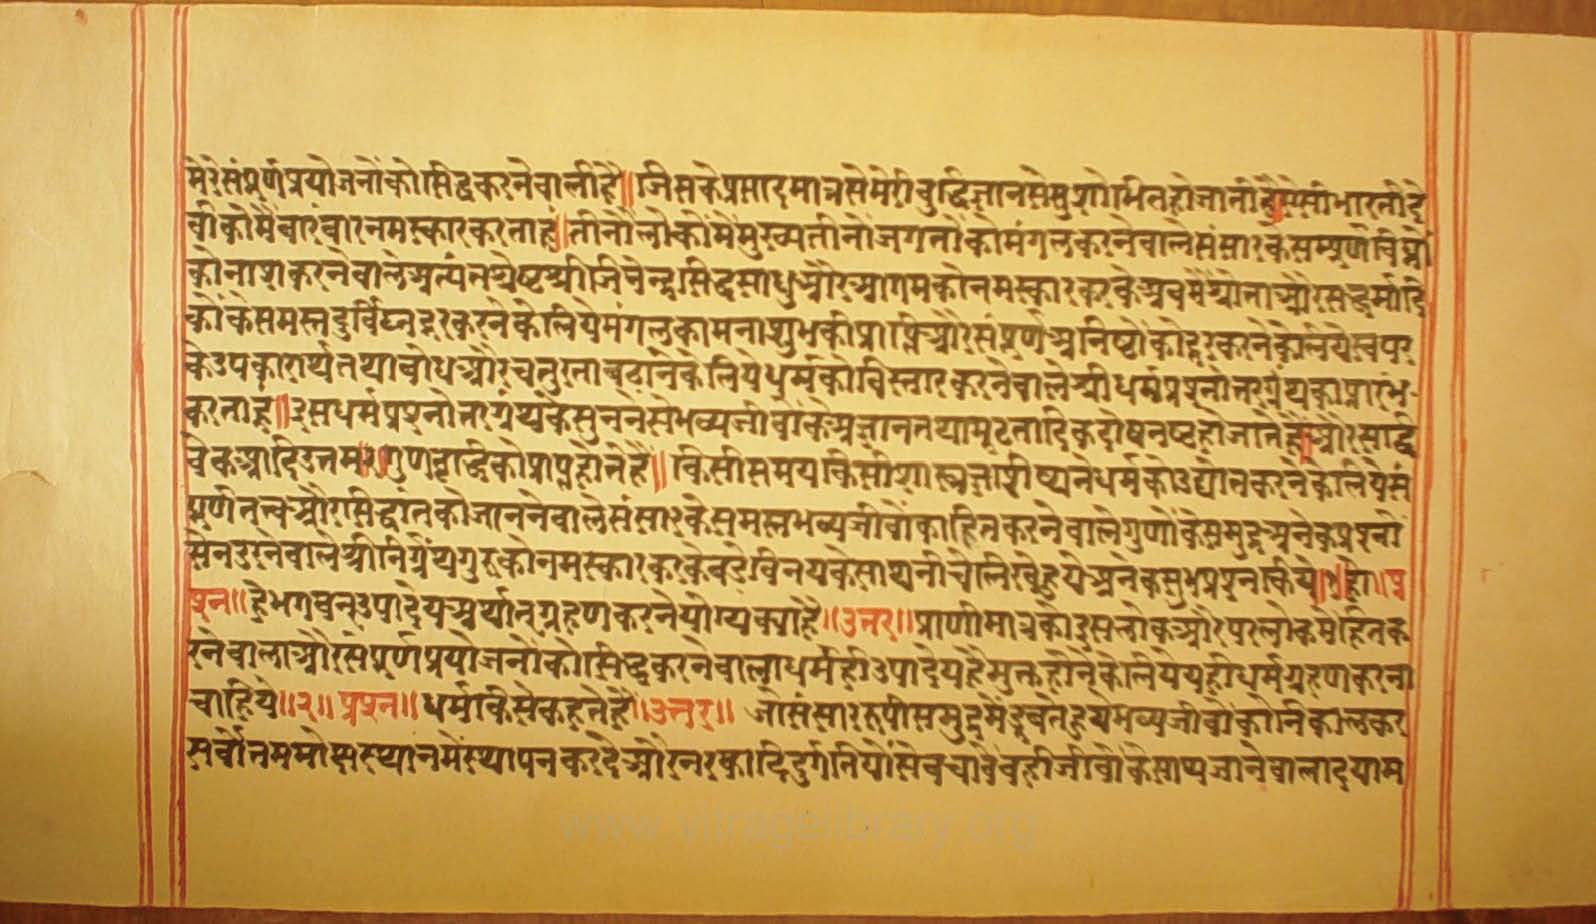 मेरेसंपूर्णप्रयोजनोंकोसिद्धकरनेवालीहै॥जिसकेप्रसादमात्रसेमेरीबुद्धिज्ञानसेसुशोभितहोजातीहै॥ऐसीभारतीदे
वीकोमैंबारंबारनमस्कारकरताहूं॥तीनोंलोकोंमेंमुख्यतीनोंजगतोंकोमंगलकरनेवालेसंसारकेसम्पूर्णविघ्नों
कोनाशकरनेवालेअत्यंतश्रेष्टश्रीजिनेन्द्रसिद्धसाधुऔरआगमकोनमस्कारकरकेअबमैंश्रोताऔरसद्धर्मादि
कोंकेसमस्तदुर्विघ्नदूरकरनेकेलियेमंगलकामनाशुभकीप्राप्तिऔरसंपूर्णअनिष्टोंकोदूरकरनेकेलियेस्वपर
केउपकारार्थतथाबोधऔरचतुरताबढानेकेलियेधर्मकोविस्तारकरनेवालेश्रीधर्मप्रश्नोत्तरग्रंथकाप्रारंभ
करताहूं॥इसधर्मप्रश्नोत्तरग्रंथकेसुननेसेभव्यजीवोंकेअज्ञानतथामूढतादिकदोषनष्टहोजातेहैं॥औरसद्वि
वेकआदिउत्तम२॥गुणवृद्धिकोप्राप्तहोतेहैं॥किसीसमयकिसीशास्त्रज्ञशिष्यनेधर्मकोउद्योतकरनेकेलियेसं
पूर्णतत्त्वऔरसिद्धांतकोजाननेवालेसंसारकेसमस्तभव्यजीवोंकाहितकरनेवालेगुणोंकेसमुद्रअनेकप्रश्नों
सेनडरनेवालेश्रीनिर्ग्रंथगुरुकोनमस्कारकरकेबडेविनयकेसाथनीचेलिखेहुयेअनेकसुभप्रश्नकिये॥१॥हो॥प्र
श्न॥हेभगवनउपादेयअर्थात्ग्रहणकरनेयोग्यक्याहै॥उत्तर॥प्राणीमात्रकोइसलोकऔरपरलोकमेंहितक
रनेवालाऔरसंपूर्णप्रयोजनोंकोसिद्धकरनेवालाधर्महीउपादेयहैमुक्तहोनेकेलियेयहीधर्मग्रहणकरना
चाहिये॥२॥प्रश्न॥धर्मकिसेकहतेहैं॥उत्तर॥जोसंसाररूपीसमुद्रमेंडूबतेहुयेभव्यजीवोंकोनिकालकर
सर्वोत्तममोक्षस्थानमेंस्थापनकरदेऔरनरकादिदुर्गतियोंसेबचावेवहीजीवोंकेसाथजानेवालादयाम
www.vitragelibrary.org